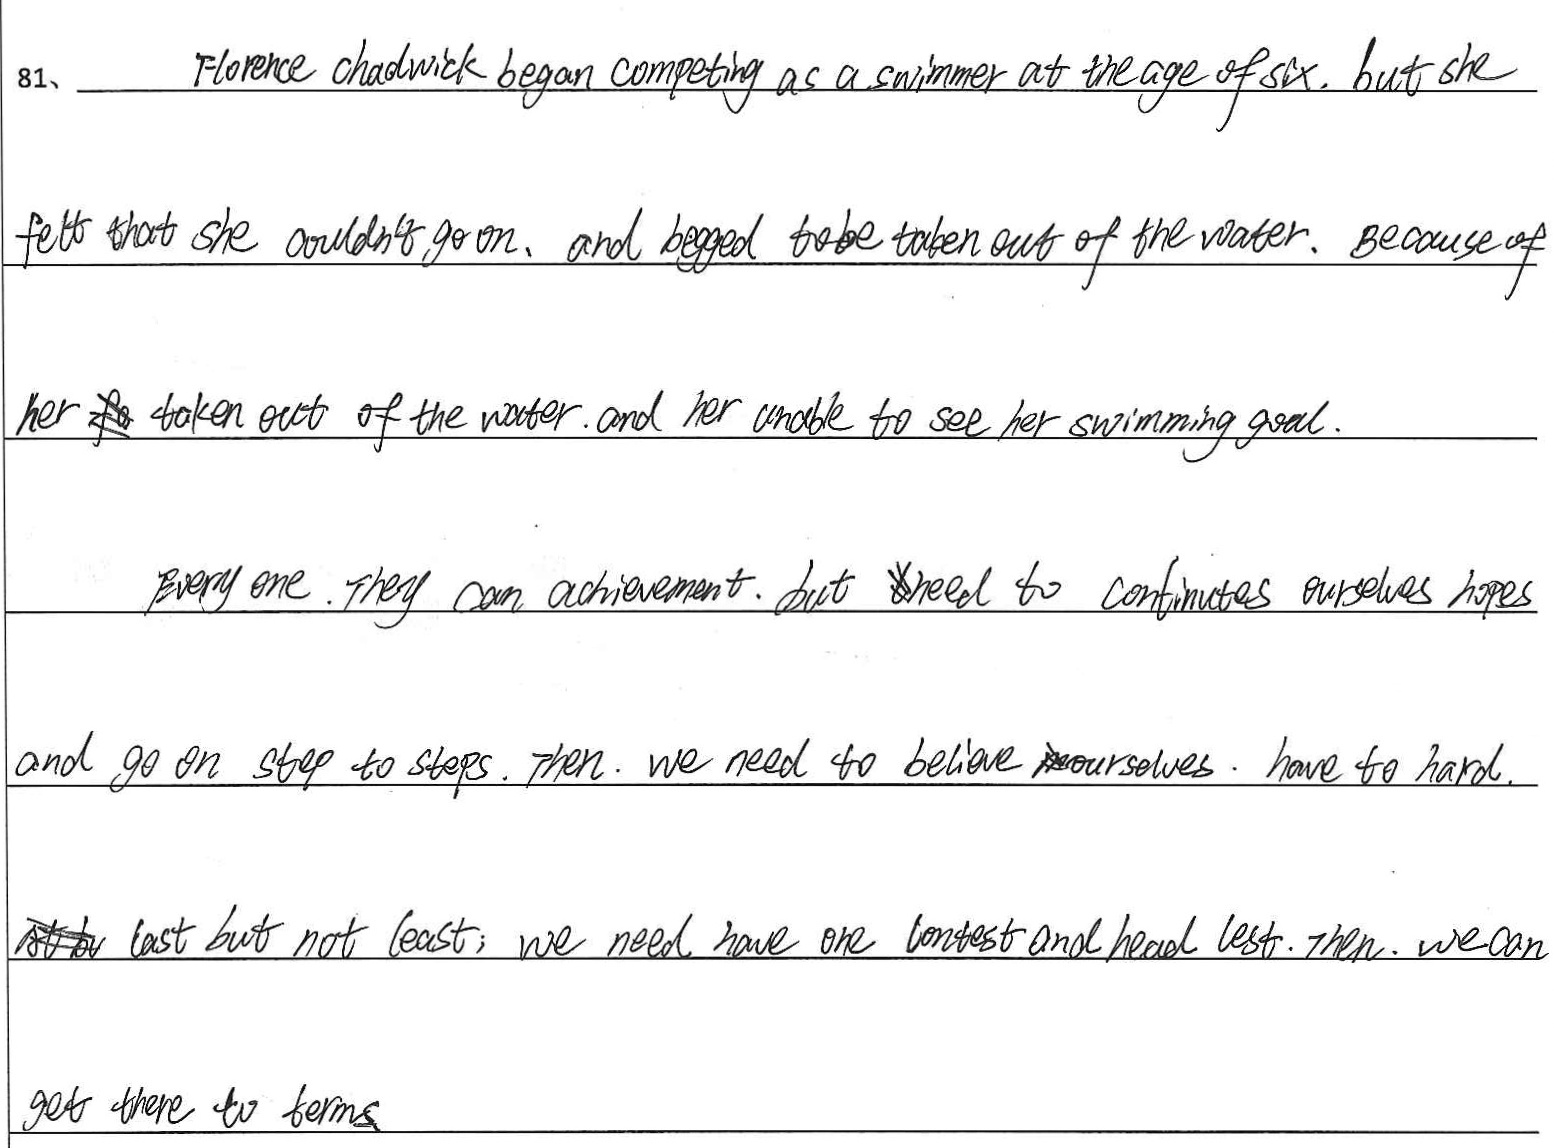 81、 Florence chadwick began competing as a swimmer at the age of six. but she
felt that she couldn't go on. and begged to be taken out of the water. Because of
her taken out of the water. and her unable to see her swimming goal.
Every one. They can achievement. but need to continutes ourselves hopes
and go on step to steps. Then. we need to believe ourselves. have to hard.
last but not least; we need have one contest and head lest. Then. we can
get there to terms